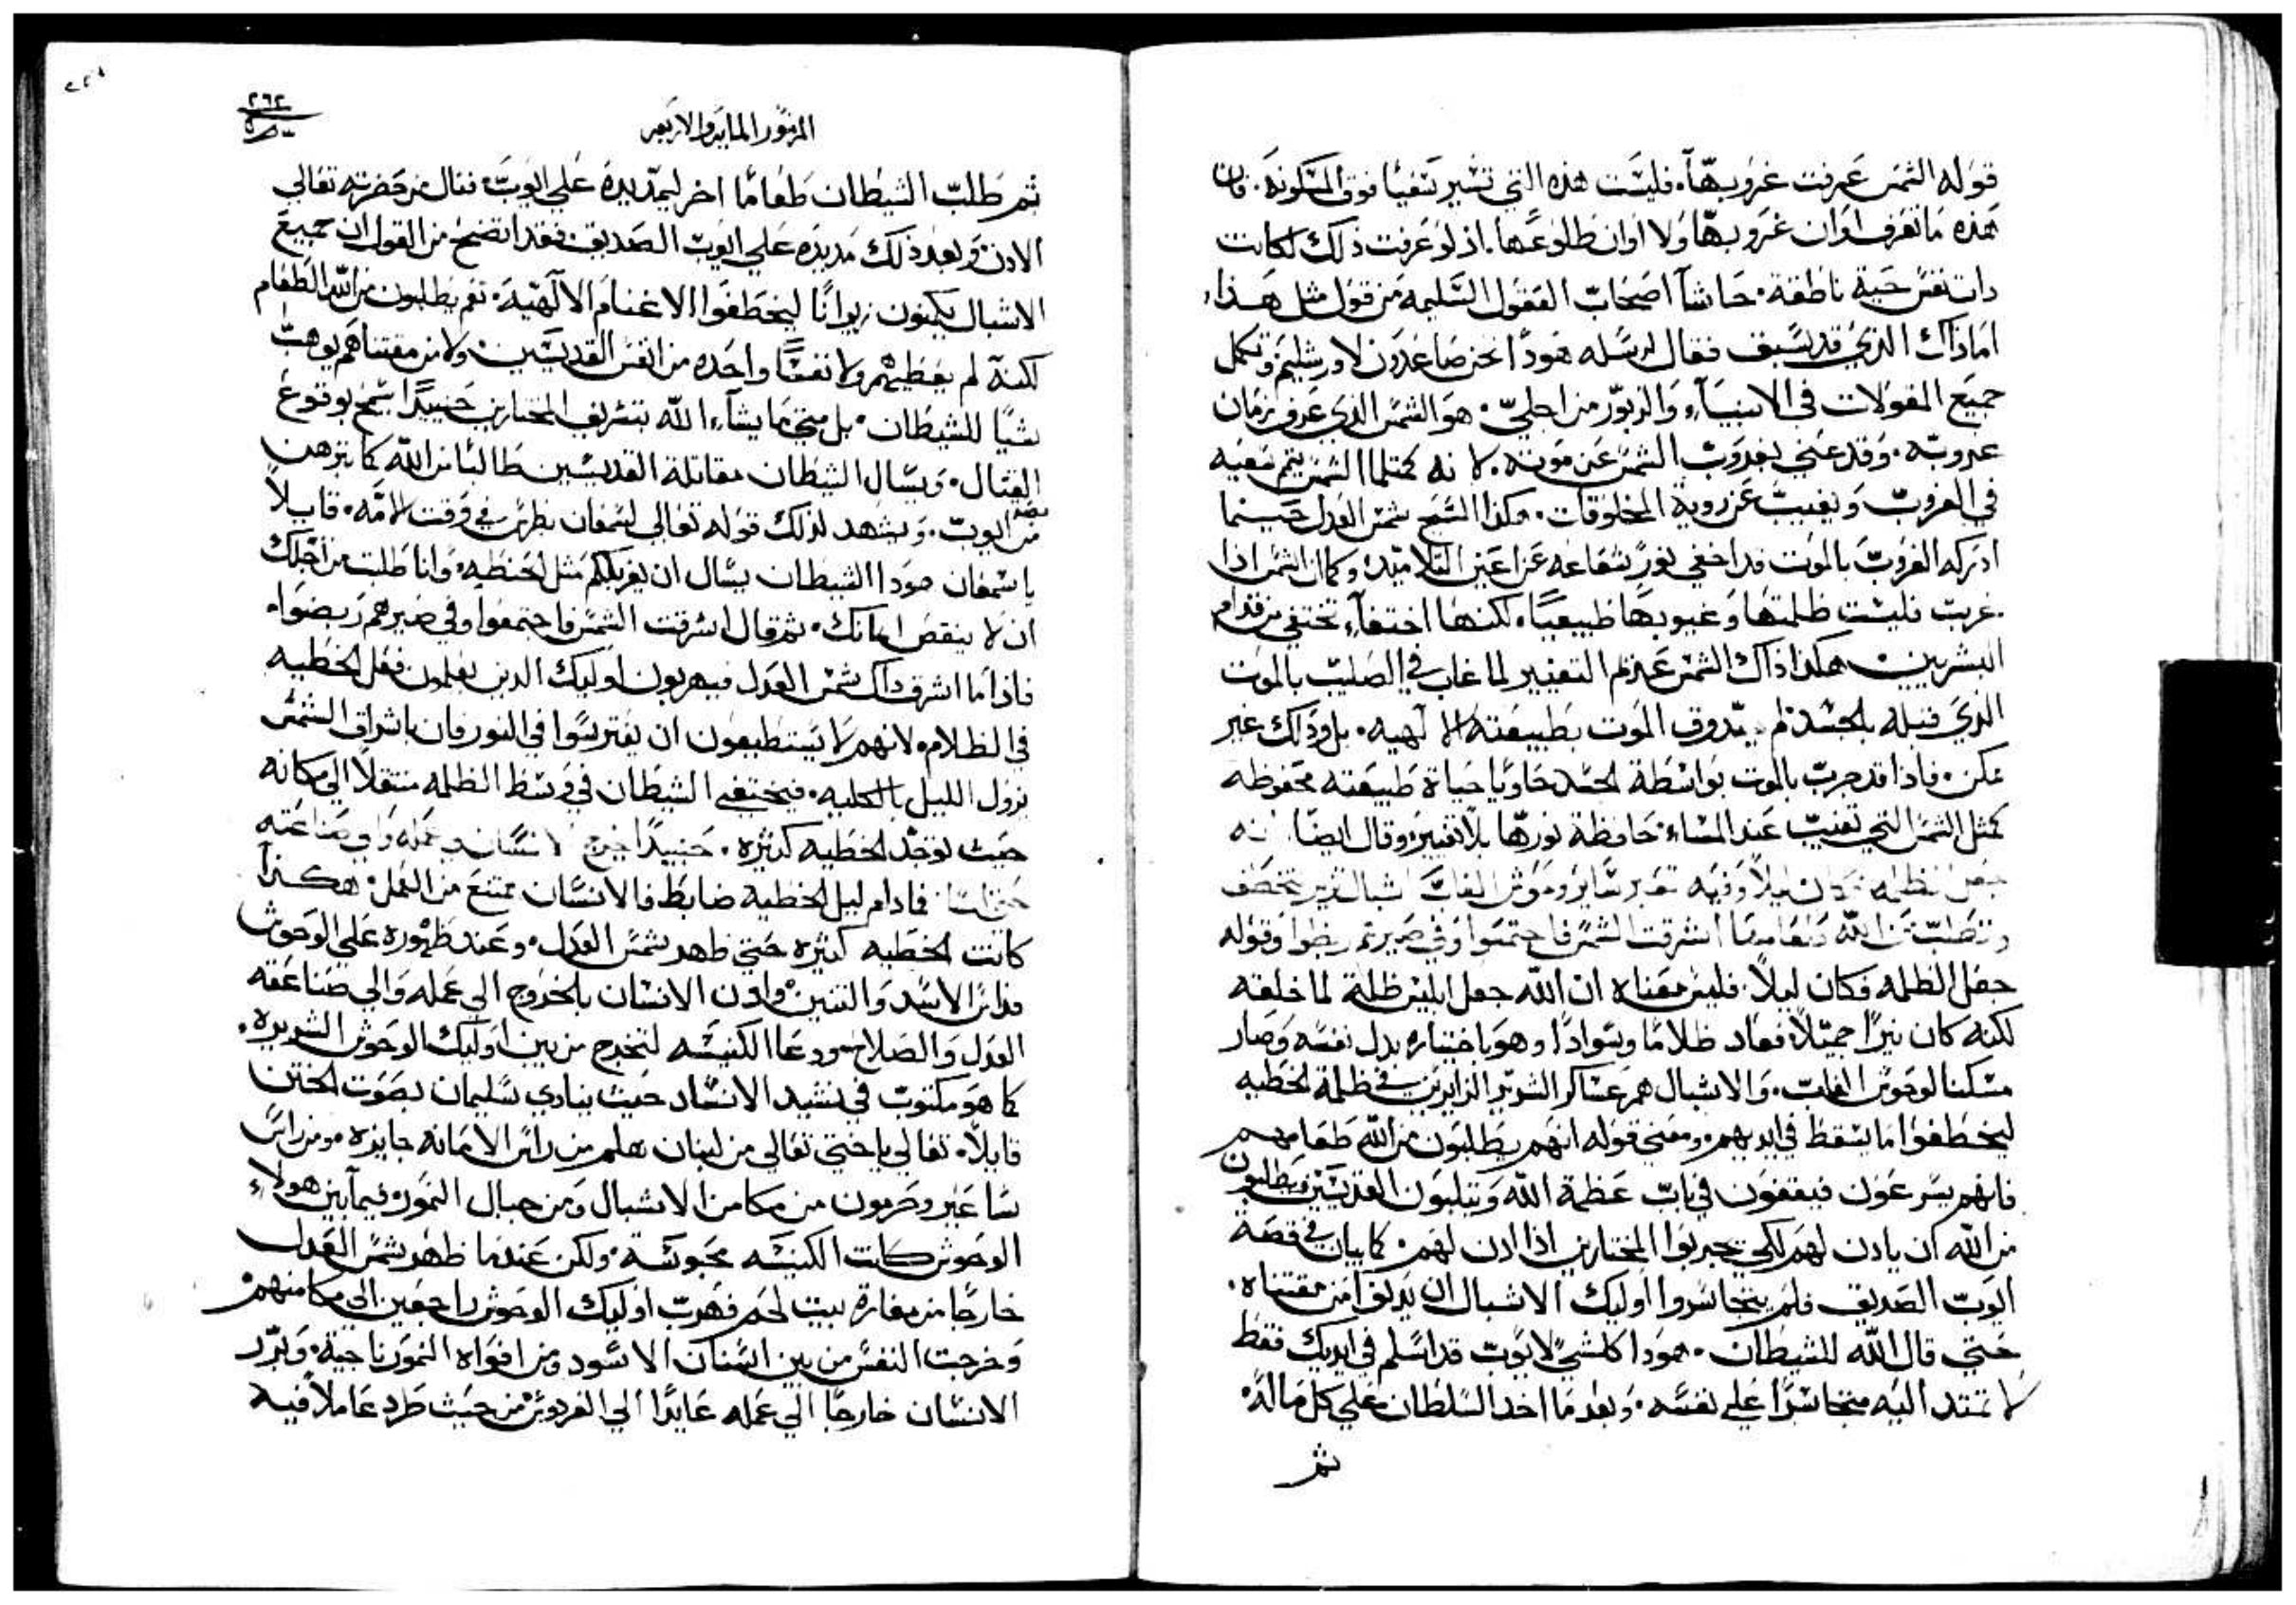 قوله الشمس عرفت غروبها. فليست هذه التي تشير تنفيا فوق المسكونة. فان
هذه ما تعرف اوان غروبها ولا اوان طلوعها. اذ لو عرفت ذلك لكانت
ذات نفس حية ناطقة. حاشا اصحاب العقول السليمه من قول مثل هذا،
اما ذاك الذي قد سبق فقال لرسله هودا نحن صاعدون لاورشليم وتكمل
جميع المقولات في الانبياء والزبور من اجلي. هو الشمس الذي عرف بزمان
غروبه. وقد عني بغروب الشمس عن موته. لانه كمثلما الشمس يتم سعيه
في الغروب ويغيب عن روية المخلوقات. هكذا المسيح شمس العدل حينما
ادركه الغروب بالموت قد اخفي نور شعاعه عن اعين التلاميد. وكما ان الشمس اذا
غربت فليست ظلمتها وغيوبها طبيعيا. لكنها اختفاء تختفي من قدام
البشريين هكذا ذاك الشمس عديم التغيير لما غاب في الصليب بالموت
الذي قبله بالجسد لم يدوق الموت بطبيعته الالهيه. بل وذلك غير
ممكن. فاذا قد جرب بالموت بواسطة الجسد حاويا حياة طبيعته محفوظه
كمثل الشمس التي تغيب عند المساء حافظة نورها بلا تغيير وقال ايضا انه
جعل الظلمه فكان ليلا وفيه تعبر ساير وحوش الغاب اشبال تزير لتخطف
وتطلب من الله طعامها اشرقت الشمس فاجتمعوا وفي صيرتهم ربضوا وقوله
جعل الظلمه فكان ليلا. فليس معناه ان الله جعل ابليس ظلمة لما خلقه
لكنه كان نيرا جميلا فعاد ظلاما وسوادا وهو باختياره بدل نفسه وصار
مسكنا لوحوش الغاب. والاشبال هم عساكر الشرير الزايرين في ظلمة الخطيه
ليخطفوا ما يسقط في ايديهم. ومعني قوله انهم يطلبون من الله طعامهم
فانهم يسرعون فيقفون في باب عظمة الله ويثلبون القديسين ويطلبون
من الله ان يادن لهم لكي يجربوا المختارين اذا ادن لهم. كما بيان في قصة
ايوب الصديق فلم يتجاسروا اوليك الاشبال ان يدنوا من مقتناه.
حتي قال الله للشيطان. هودا كلشي لايوب قد اسلم في ايديك فقط
لا تمتد اليه متجاسرا علي نفسه. وبعد ما اخد السلطان علي كل ماله.
ثم
المزمور الماية والاربعه
٢٦٢
ثم طلب الشيطان طعاما اخر ليمد يده علي ايوب. فنال من حضرته تعالي
الادن وبعد ذلك مد يده علي ايوب الصديق. فقد اتضح من القول ان جميع
الاشبال يكونون زيوانا ليخطفوا الاغنام الالهيه. نعم يطلبون من الله الطعام
لكنه لم يعطيهم ولا نفسا واحده من انفس القديسين. ولا من مقتناهم يوهب
شيا للشيطان. بل متي ما يشاء الله بتشريف المختارين حينيدا يسمح بوقوع
القتال. ويسال الشيطان مقاتلة القديسين طالبا من الله كما تبرهن
من ايوب. ويشهد لذلك قوله تعالي لشمعان بطرس في وقت الامه. قايلا
يا سمعان هودا الشيطان يسال ان يغربلكم مثل الحنطه. وانا طلبت من اجلك
ان لا ينقص ايمانك. ثم قال اشرقت الشمس فاجتمعوا وفي صيرهم ربضوا.
فاذا ما اشرق ذاك شمس العدل فيهربون اوليك الدين يعلمون فعل الخطيه
في الظلام. لانهم لا يستطيعون ان يفترسوا في النور فان باشراق الشمس
يزول الليل بالكليه. فيختفي الشيطان في وسط الظلمه منتقلا الي مكانه
حيث توجد الخطيه كثيره. حينيدا يخرج الانسان الي عمله والي صناعته
حتي المسا. فمادام ليل الخطيه ضابط فالانسان ممتنع من العمل. هكذا
كانت الخطيه كثيره حتي ظهر شمس العدل. وعند ظهوره علي الوحوش
فداس الاسد والتنين. وادن الانسان بالخروج الي عمله والي صناعته
العدل والصلاح ودعا الكنيسه لتخرج من بين اوليك الوحوش الشريره.
كما هو مكتوب في نشيد الانشاد حيث ينادي سليمان بصوت الختن
قايلا. تعالي يا ختي تعالي من لبنان هلم من راس الامانه جايزه. ومن راس
ساعير وحرمون من مكامن الاشبال ومن جبال النمور. فيما بين هولاء
الوحوش كانت الكنيسه محبوسة. ولكن عندما ظهر شمس العدل
خارجا من مغارة بيت لحم فهرب اوليك الوحوش راجعين الي مكامنهم
وخرجت النفس من بين اسنان الاسود ومن افواه النمور ناجية. وبرر
الانسان خارجا الي عمله عايدا الي الفردوس من حيث طرد عاملا فيه